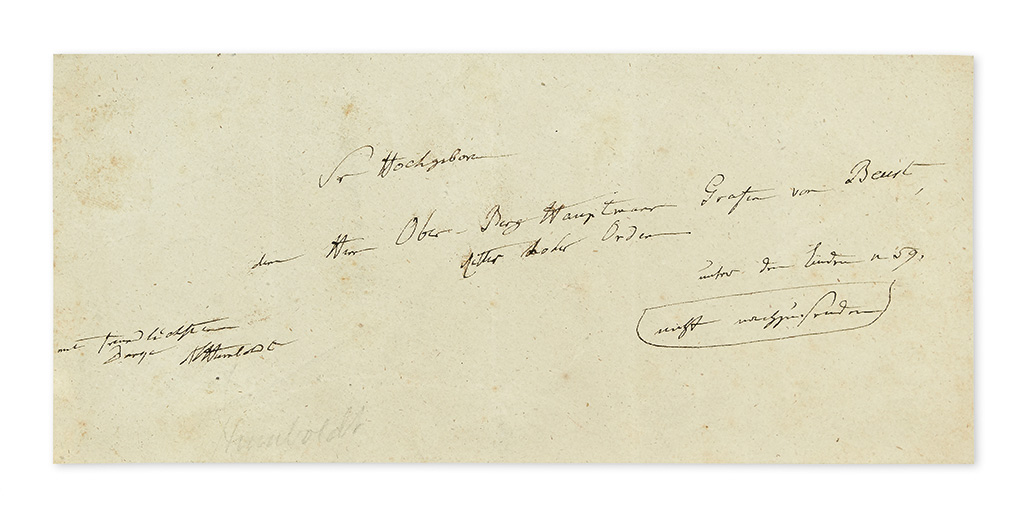 Sr Hochgeboren
dem Herrn Ober-Berg Hauptmann Grafen von Beust,
Ritter hoher Orden
unter den Linden n 59.
nicht nachzusenden
mit freundlichstem
Danke AlHumboldt
Humboldt